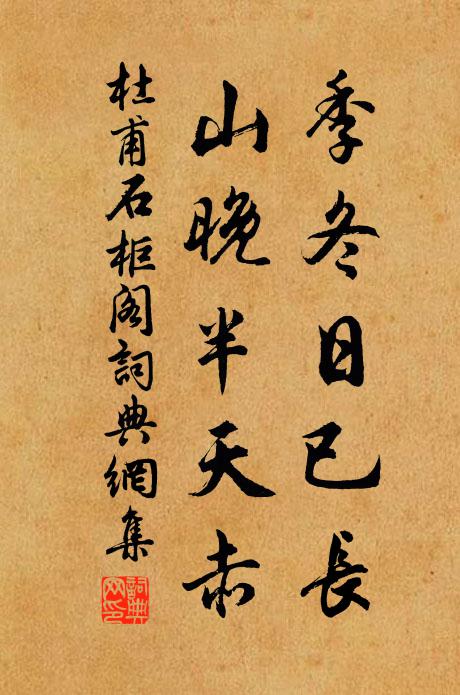 季冬日已長
山晚半天赤
杜甫石柜閣詞典網集
詞典网印